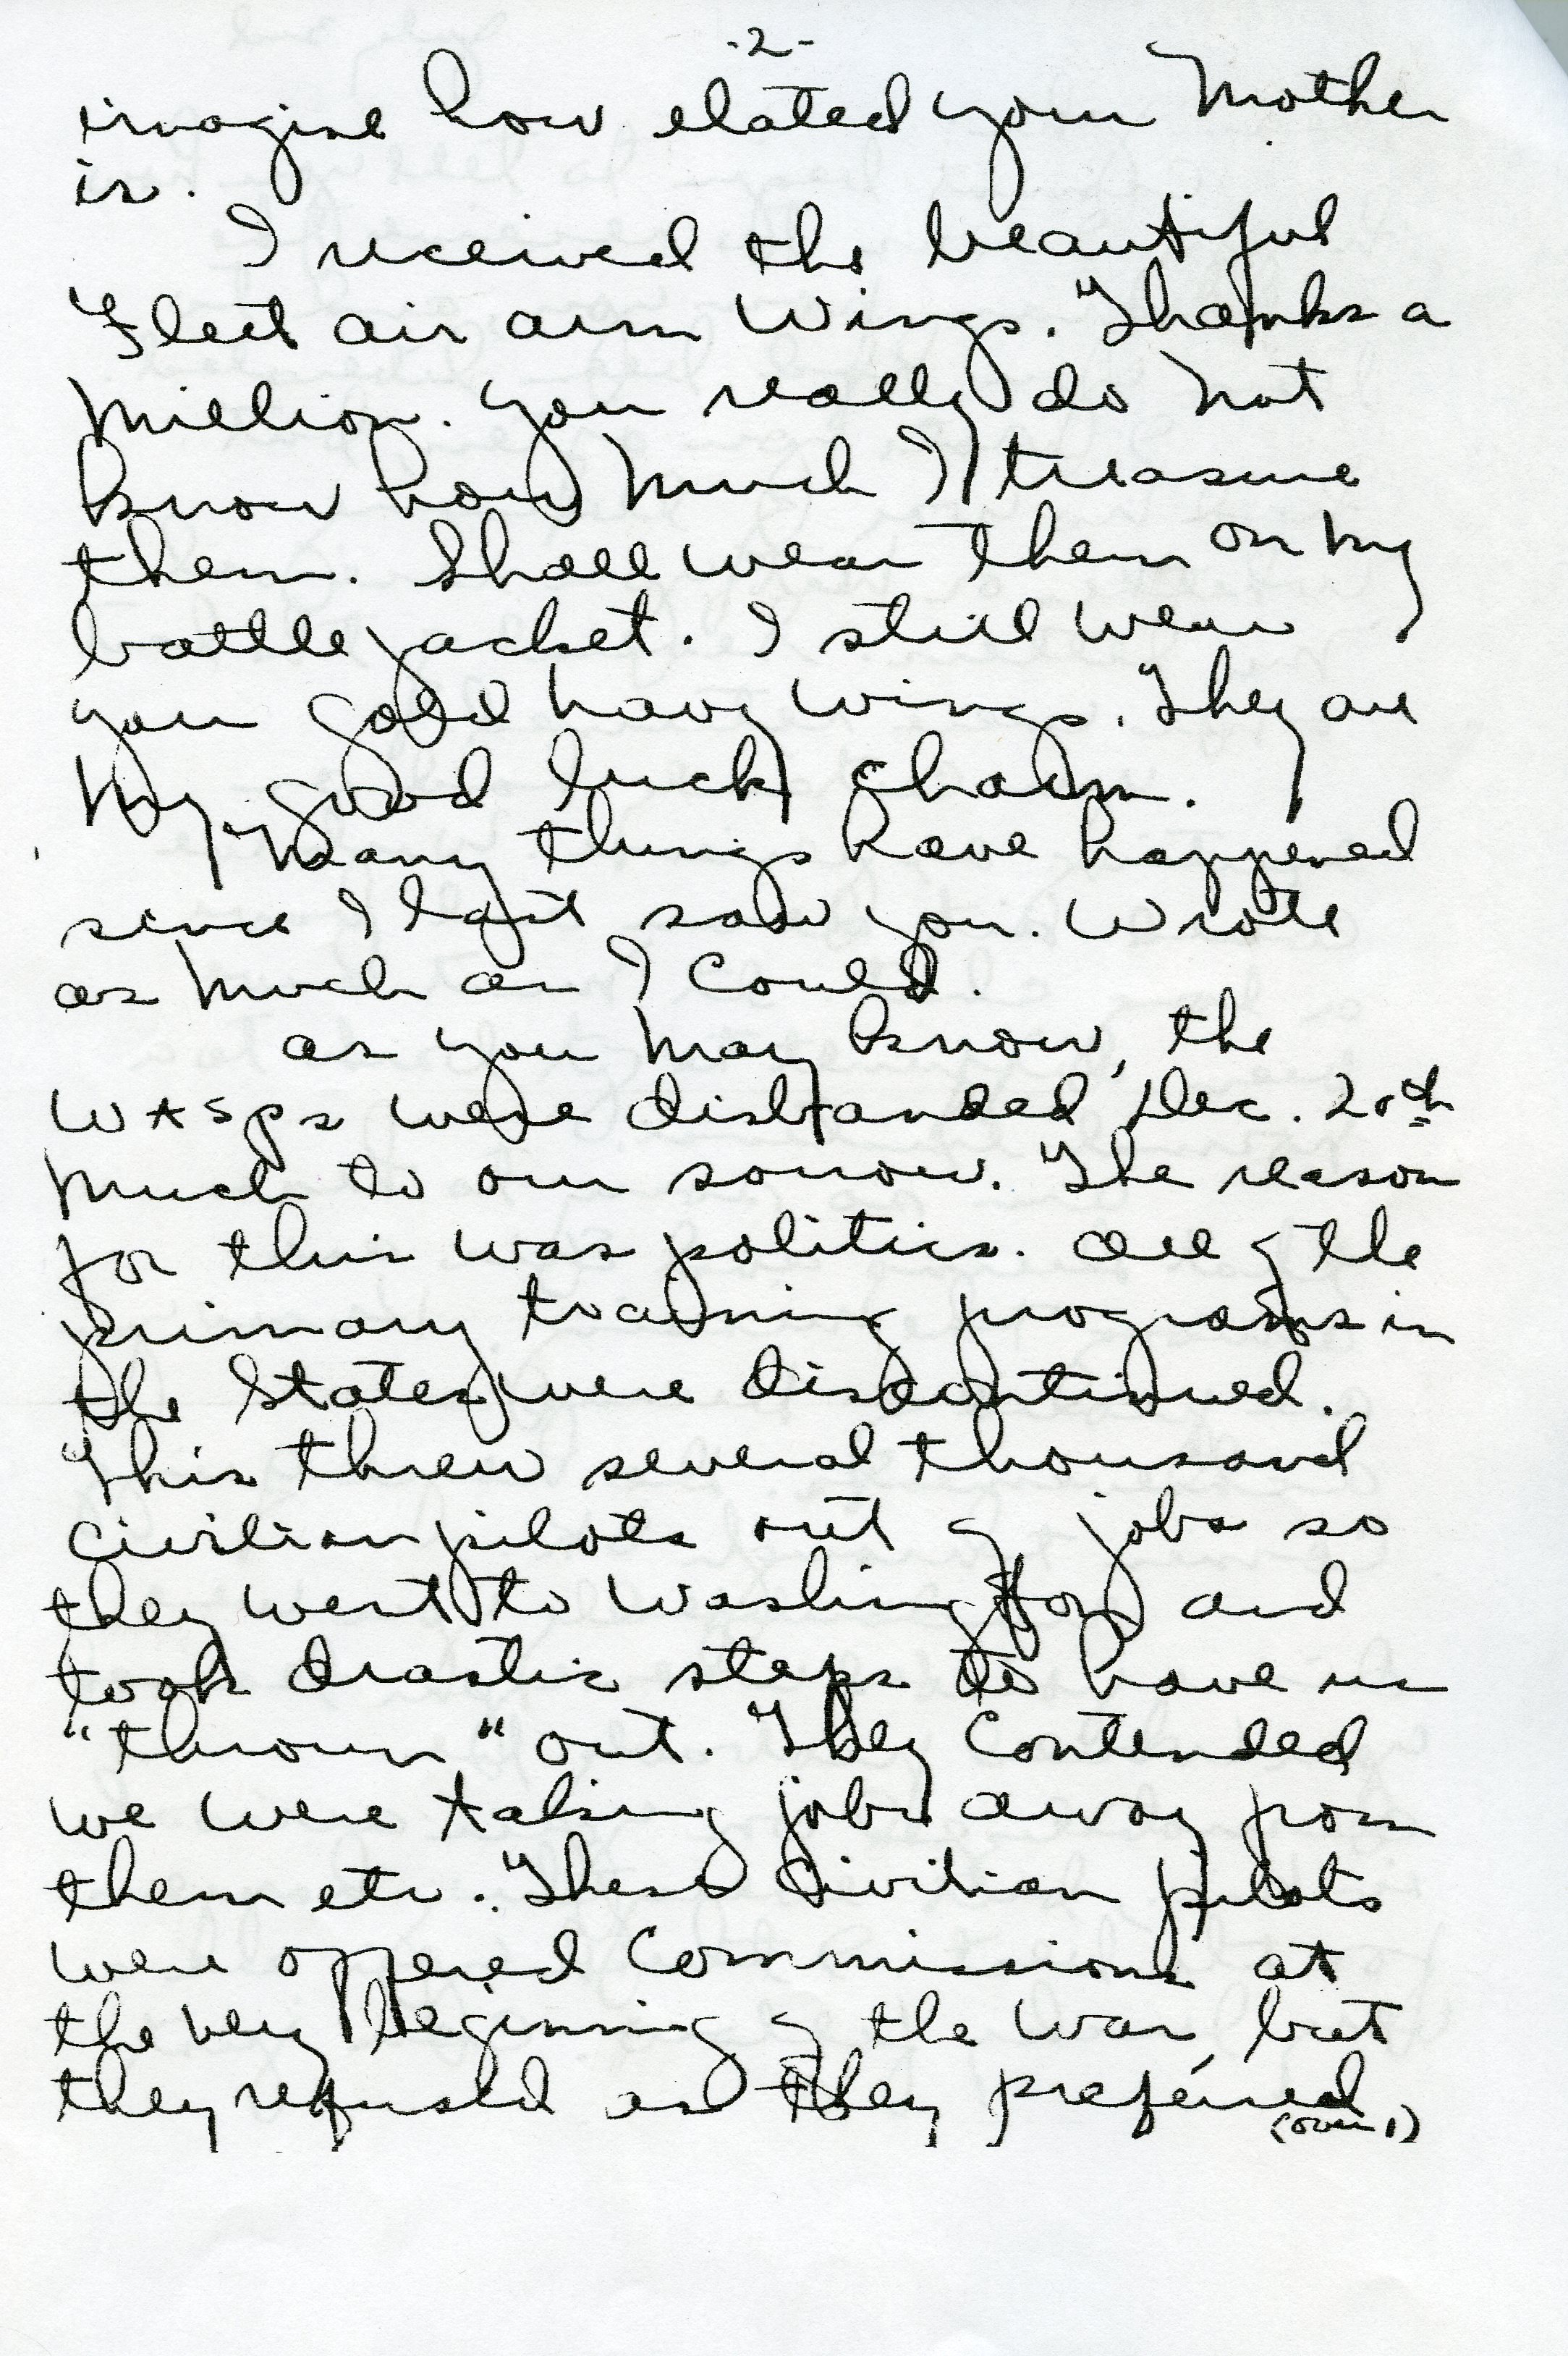 -2-
imagine how elated your Mother
is.
I received the beautiful
Fleet air arm Wings. Thanks a
Million. You really do not
know how much I treasure
them. Shall wear them on my
battle jacket. I still wear
your gold navy wings. They are
My good luck charm.
Many things have happened
since I last saw you. Wrote
as much as I could.
as you may know, the
WASPs were disbanded Dec. 20th
much to our sorrow. The reason
for this was politics. All of the
primary training programs in
the States were discontinued.
This threw several thousand
civilian pilots out of jobs so
they went to Washington and
took drastic steps to have us
"thrown" out. They contended
we were taking jobs away from
them etc. These civilian pilots
were offered Commissions at
the very beginning of the war, but
they refused as they preferred
(over)